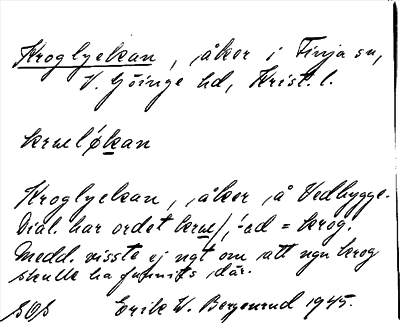 Kroglyckan, åker i Finja sn,
V. Göinge hd, Krist. l.
Kroglyckan, åker å Vedhygge.
Dial. har ordet = krog.
Medd. visste ej ngt om att ngn krog
skulle ha funnits där.
Erik W. Bergenrud 1945.